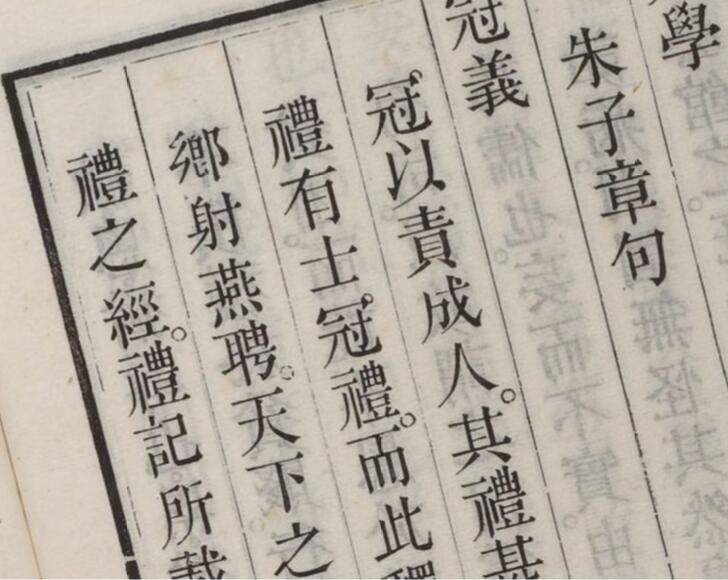 學
朱子章句
冠義
冠以責成人。其禮甚
禮有士冠禮。而此釋
鄉射燕聘。天下之
禮之經。禮記所載